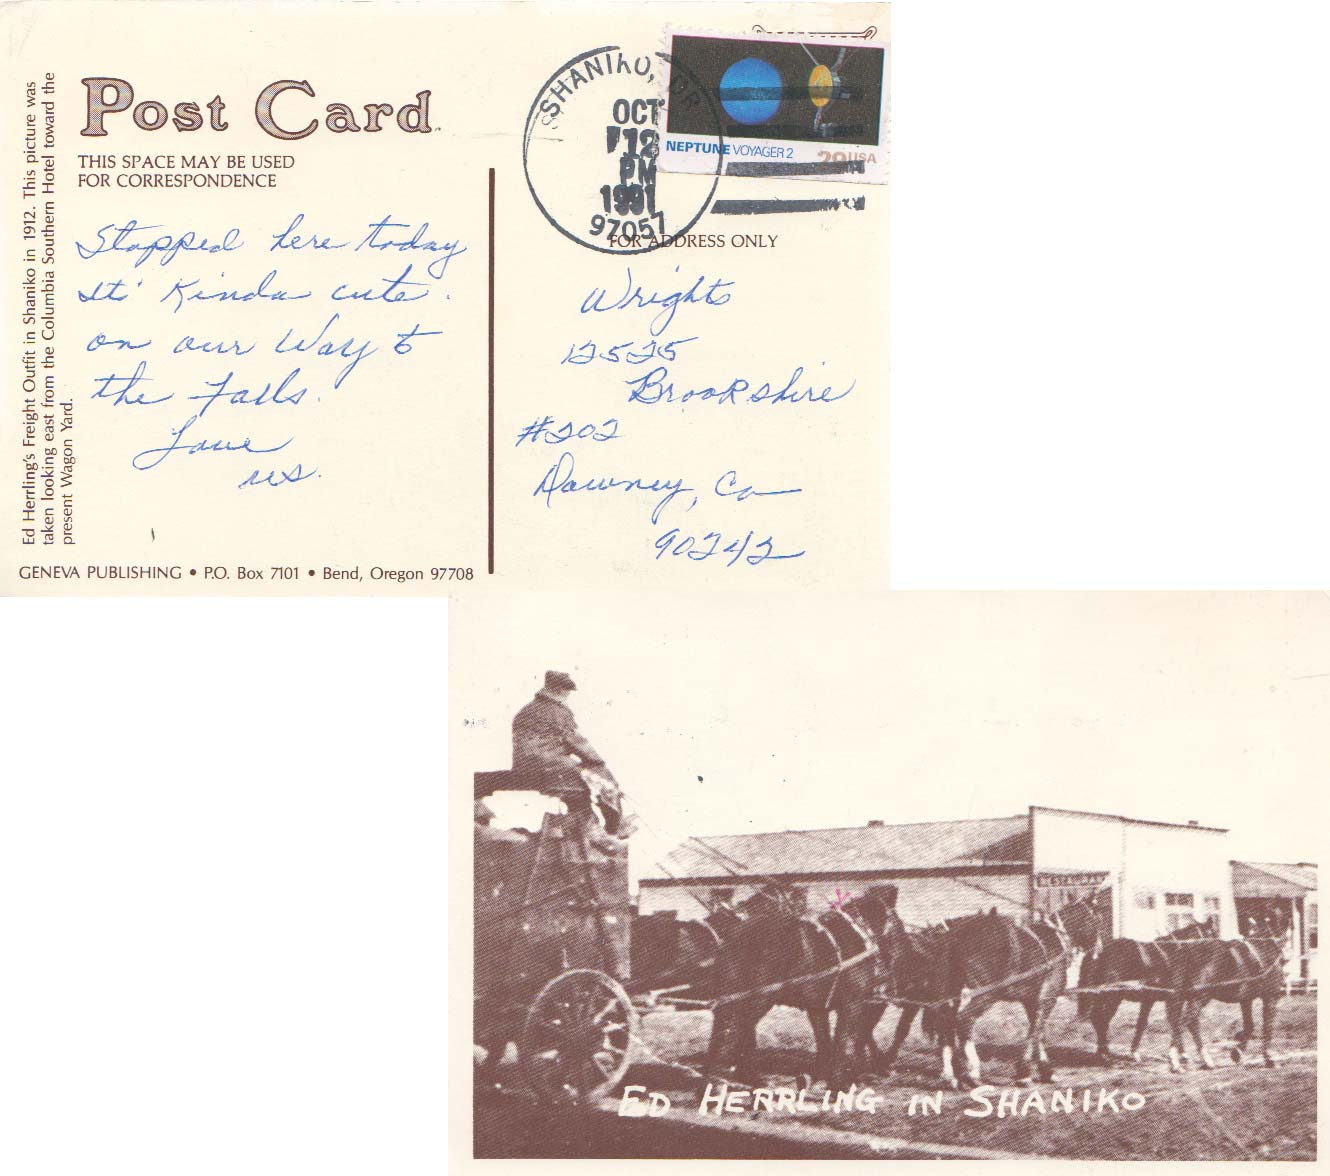 Ed Herrling's Freight Outfit in Shaniko in 1912. This picture was
taken looking east from the Columbia Southern Hotel toward the
present Wagon Yard.
Post Card
THIS SPACE MAY BE USED
FOR CORRESPONDENCE
Stopped here today
It' Kinda cute.
on our way to
the Falls.
Love
us.
GENEVA PUBLISHING • P.O. Box 7101 • Bend, Oregon 97708
SHANIKO, OR
OCT
12
PM
1991
97057
NEPTUNE VOYAGER 2
29 USA
FOR ADDRESS ONLY
Wrights
12525
Brookshire
#202
Downey, Ca
90242
RESTAURANT
ED HERRLING IN SHANIKO